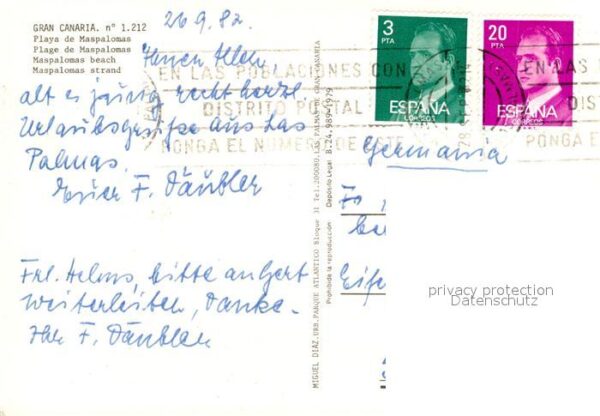 GRAN CANARIA. nº 1.212
Playa de Maspalomas
Plage de Maspalomas
Maspalomas beach
Maspalomas strand
26.9.82.
recht herzl.
Urlaubsgrüße aus Las
Palmas,
F. Däubler
Frl. Helms, bitte
weiterleiten, Danke.
Ihr F. Däubler
MIGUEL DIAZ.URB.PARQUE ATLANTICO Bloque 31 Tel.200080.LAS PALMAS DE GRAN CANARIA
Depósito Legal B.24.989-1979
Prohibida la reproducción
3
PTA
ESPAÑA
CORREOS
20
PTA
ESPAÑA
CORREOS
EN LAS POBLACIONES CON
DISTRITO POSTAL
PONGA EL NUMERO DE
EN LAS
PONGA E
Germania
privacy protection
Datenschutz